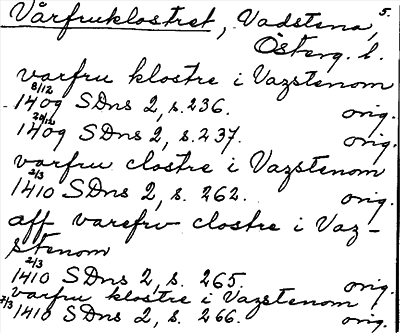 Vårfruklostret, Vadstena, 5.
Österg. l.
varfru klostre i Vazstenom
8/12 1409 SDns 2, s. 236. orig.
20/12 1409 SDns 2, s. 237. orig.
varfru clostre i Vazstenom
2/3 1410 SDns 2, s. 262. orig.
aff varefrv clostre i Vaz-
stenom
2/3 1410 SDns 2, s. 265. orig.
varfru klostre i Vazstenom
7/3 1410 SDns 2, s. 266. orig.